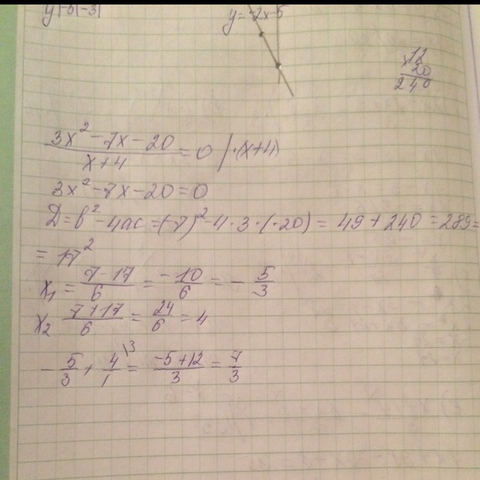 y|-6|-3|
y=-2x-5
12
20
240
3x²-7x-20 / x+4 = 0 /·(x+4)
3x²-7x-20=0
D=b²-4ac=(-7)²-4·3·(-20)=49+240=289=
=17²
x₁=7-17/6=-10/6=-5/3
x₂ 7+17/6=24/6=4
-5/3+4/1\3=-5+12/3=7/3